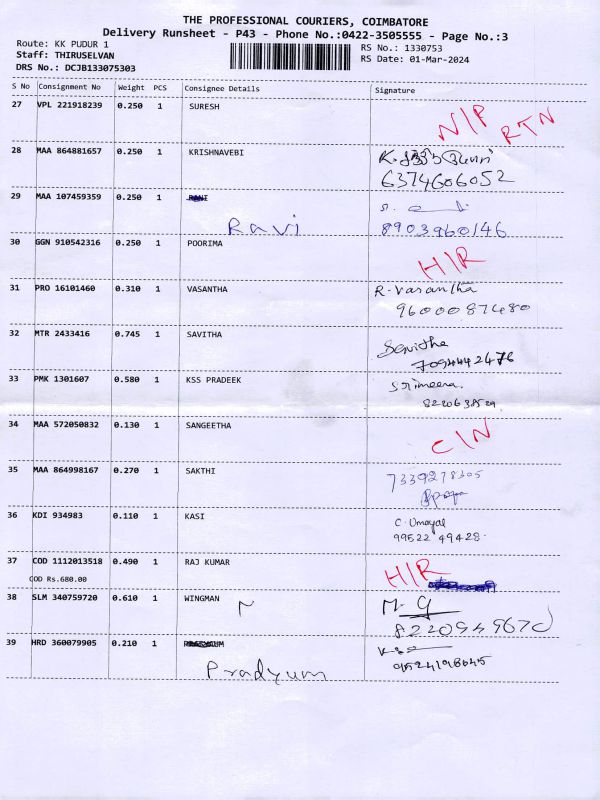 THE PROFESSIONAL COURIERS, COIMBATORE
Delivery Runsheet - P43 - Phone No.:0422-3505555 - Page No.:3
Route: KK PUDUR 1 RS No.: 1330753
Staff: THIRUSELVAN RS Date: 01-Mar-2024
DRS No.: DCJB133075303
S No Consignment No Weight PCS Consignee Details Signature
27 VPL 221918239 0.250 1 SURESH N/P RTN
28 MAA 864881657 0.250 1 KRISHNAVEBI
6374606052
29 MAA 107459359 0.250 1
Ravi 8903960146
30 GGN 910542316 0.250 1 POORIMA H/R
31 PRO 16101460 0.310 1 VASANTHA R. Vasantha
9600087480
32 MTR 2433416 0.745 1 SAVITHA Savitha
7094442476
33 PMK 1301607 0.580 1 KSS PRADEEK Srimeera.
34 MAA 572050832 0.130 1 SANGEETHA C/N
35 MAA 864998167 0.270 1 SAKTHI 7339278305
36 KDI 934983 0.110 1 KASI C. Umayal
99522 49428.
37 COD 1112013518 0.490 1 RAJ KUMAR H/R
COD Rs.680.00
38 SLM 340759720 0.610 1 WINGMAN N M. G
8220949670
39 HRD 360079905 0.210 1
Pradyum 9524198645